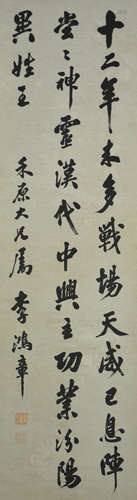 十二年来多戰場天威已息陣
堂堂神靈漢代中興主功業汾陽
異姓王
禾原大兄屬 李鴻章